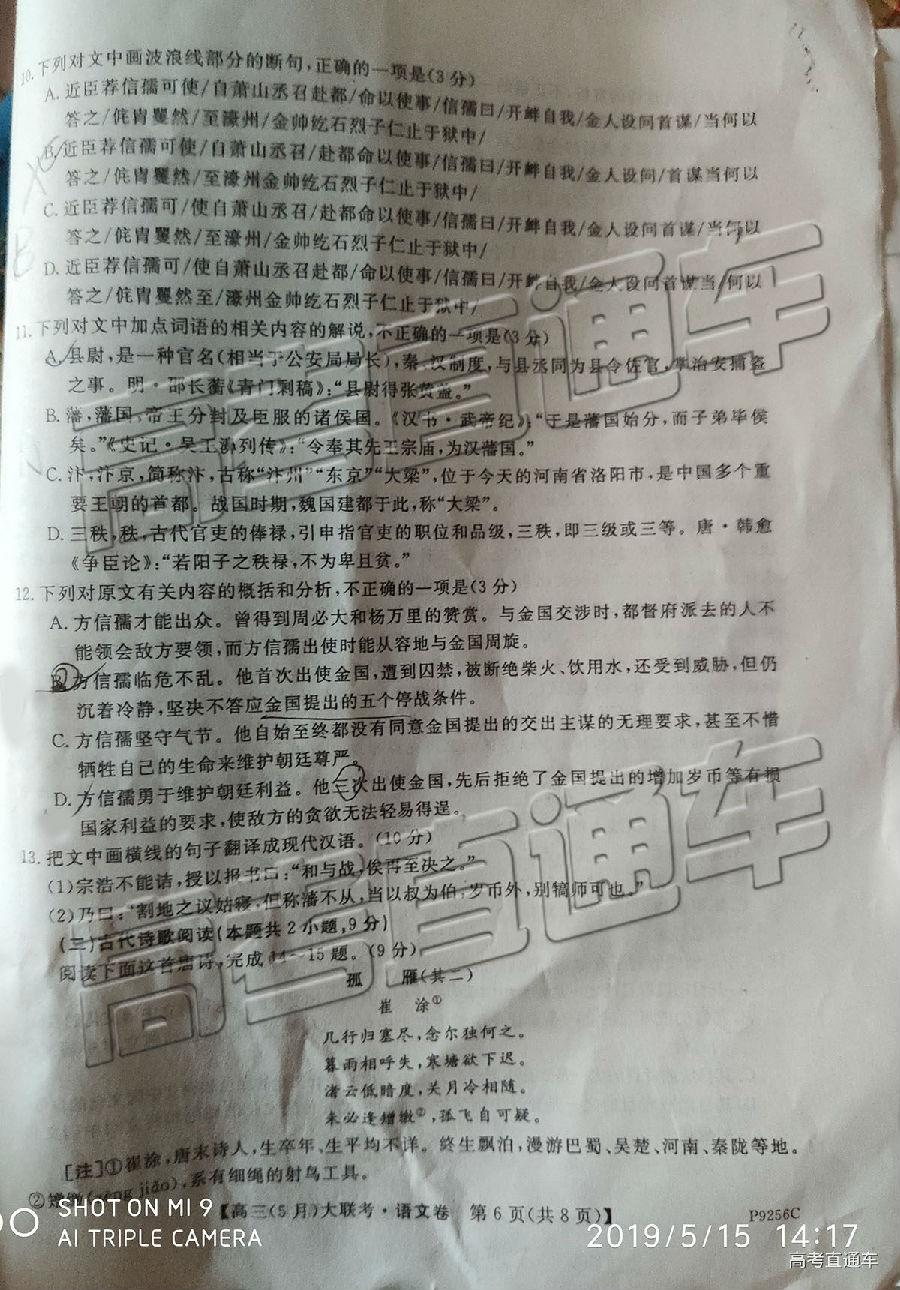 10.下列对文中画波浪线部分的断句,正确的一项是(3分)
A.近臣荐信孺可使/自萧山丞召赴都/命以使事/信孺曰/开衅自我/金人设问首谋/当何以
答之/侂胄矍然/至濠州/金帅纥石烈子仁止于狱中/
B.近臣荐信孺可使/自萧山丞召/赴都命以使事/信孺曰/开衅自我/金人设问/首谋当何以
答之/侂胄矍然/至濠州金帅纥石烈子仁止于狱中/
C.近臣荐信孺可/使自萧山丞召/赴都命以使事/信孺曰/开衅自我/金人设问首谋/当何以
答之/侂胄矍然/至濠州/金帅纥石烈子仁止于狱中/
D.近臣荐信孺可/使自萧山丞召赴都/命以使事/信孺曰/开衅自我/金人设问首谋当/何以
答之/侂胄矍然至/濠州金帅纥石烈子仁止于狱中/
11.下列对文中加点词语的相关内容的解说,不正确的一项是(3分)
A.县尉,是一种官名(相当于公安局局长),秦、汉制度,与县丞同为县令佐官,掌治安捕盗
之事。明·邵长蘅《青门剩稿》:“县尉得张黄盖。”
B.藩,藩国,帝王分封及臣服的诸侯国。《汉书·武帝纪》:“于是藩国始分,而子弟毕侯
矣。”《史记·吴王濞列传》:“令奉其先王宗庙,为汉藩国。”
C.汴,汴京,简称汴,古称“汴州”“东京”“大梁”,位于今天的河南省洛阳市,是中国多个重
要王朝的首都。战国时期,魏国建都于此,称“大梁”。
D.三秩,秩,古代官吏的俸禄,引申指官吏的职位和品级,三秩,即三级或三等。唐·韩愈
《争臣论》:“若阳子之秩禄,不为卑且贫。”
12.下列对原文有关内容的概括和分析,不正确的一项是(3分)
A.方信孺才能出众。曾得到周必大和杨万里的赞赏。与金国交涉时,都督府派去的人不
能领会敌方要领,而方信孺出使时能从容地与金国周旋。
B.方信孺临危不乱。他首次出使金国,遭到囚禁,被断绝柴火、饮用水,还受到威胁,但仍
沉着冷静,坚决不答应金国提出的五个停战条件。
C.方信孺坚守气节。他自始至终都没有同意金国提出的交出主谋的无理要求,甚至不惜
牺牲自己的生命来维护朝廷尊严。
D.方信孺勇于维护朝廷利益。他三次出使金国,先后拒绝了金国提出的增加岁币等有损
国家利益的要求,使敌方的贪欲无法轻易得逞。
13.把文中画横线的句子翻译成现代汉语。(10分)
(1)宗浩不能诘,授以报书曰:“和与战,俟再至决之。”
(2)乃曰:“割地之议姑寝,但称藩不从,当以叔为伯,岁币外,别犒师可也。”
(三)古代诗歌阅读(本题共2小题,9分)
阅读下面这首唐诗,完成14—15题。(9分)
孤 雁(其二)
崔 涂①
几行归塞尽,念尔独何之。
暮雨相呼失,寒塘欲下迟。
渚云低暗度,关月冷相随。
未必逢矰缴②,孤飞自可疑。
[注]①崔涂,唐末诗人,生卒年、生平均不详。终生飘泊,漫游巴蜀、吴楚、河南、秦陇等地。
②矰缴(zēng jiǎo),系有细绳的射鸟工具。
【高三(5月)大联考·语文卷 第6页(共8页)】 P9256C
SHOT ON MI 9
AI TRIPLE CAMERA
2019/5/15 14:17
高考直通车
高考直通车
高考直通车